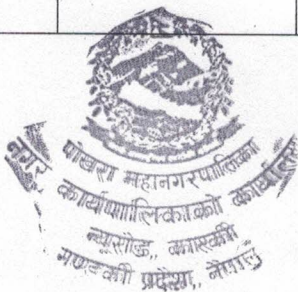 नगर
पोखरा महानगरपालिका
कार्यपालिकाको कार्यालय
न्यूरोड, कास्की
गण्डकी प्रदेश, नेपाल